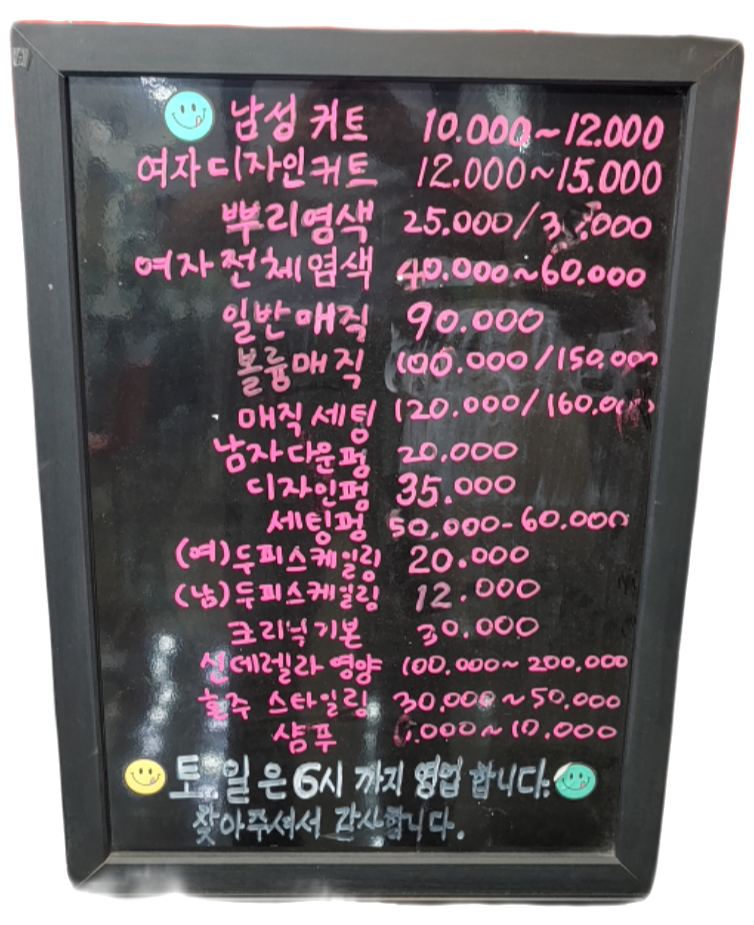 남성 커트 10.000~12.000
여자디자인커트 12.000~15.000
뿌리염색 25.000/
여자전체염색 40.000~60.000
일반매직 90.000
볼륨매직 100.000/150.000
매직세팅 120.000/160.000
남자다운펌 20.000
디자인펌 35.000
세팅펌 50.000-60.000
(여)두피스케일링 20.000
(남)두피스케일링 12.000
크리닉기본 30.000
신데렐라 영양 100.000~200.000
혼주 스타일링 30.000~50.000
샴푸 ~10.000
토.일은 6시 까지 영업 합니다.
찾아주셔서 감사합니다.